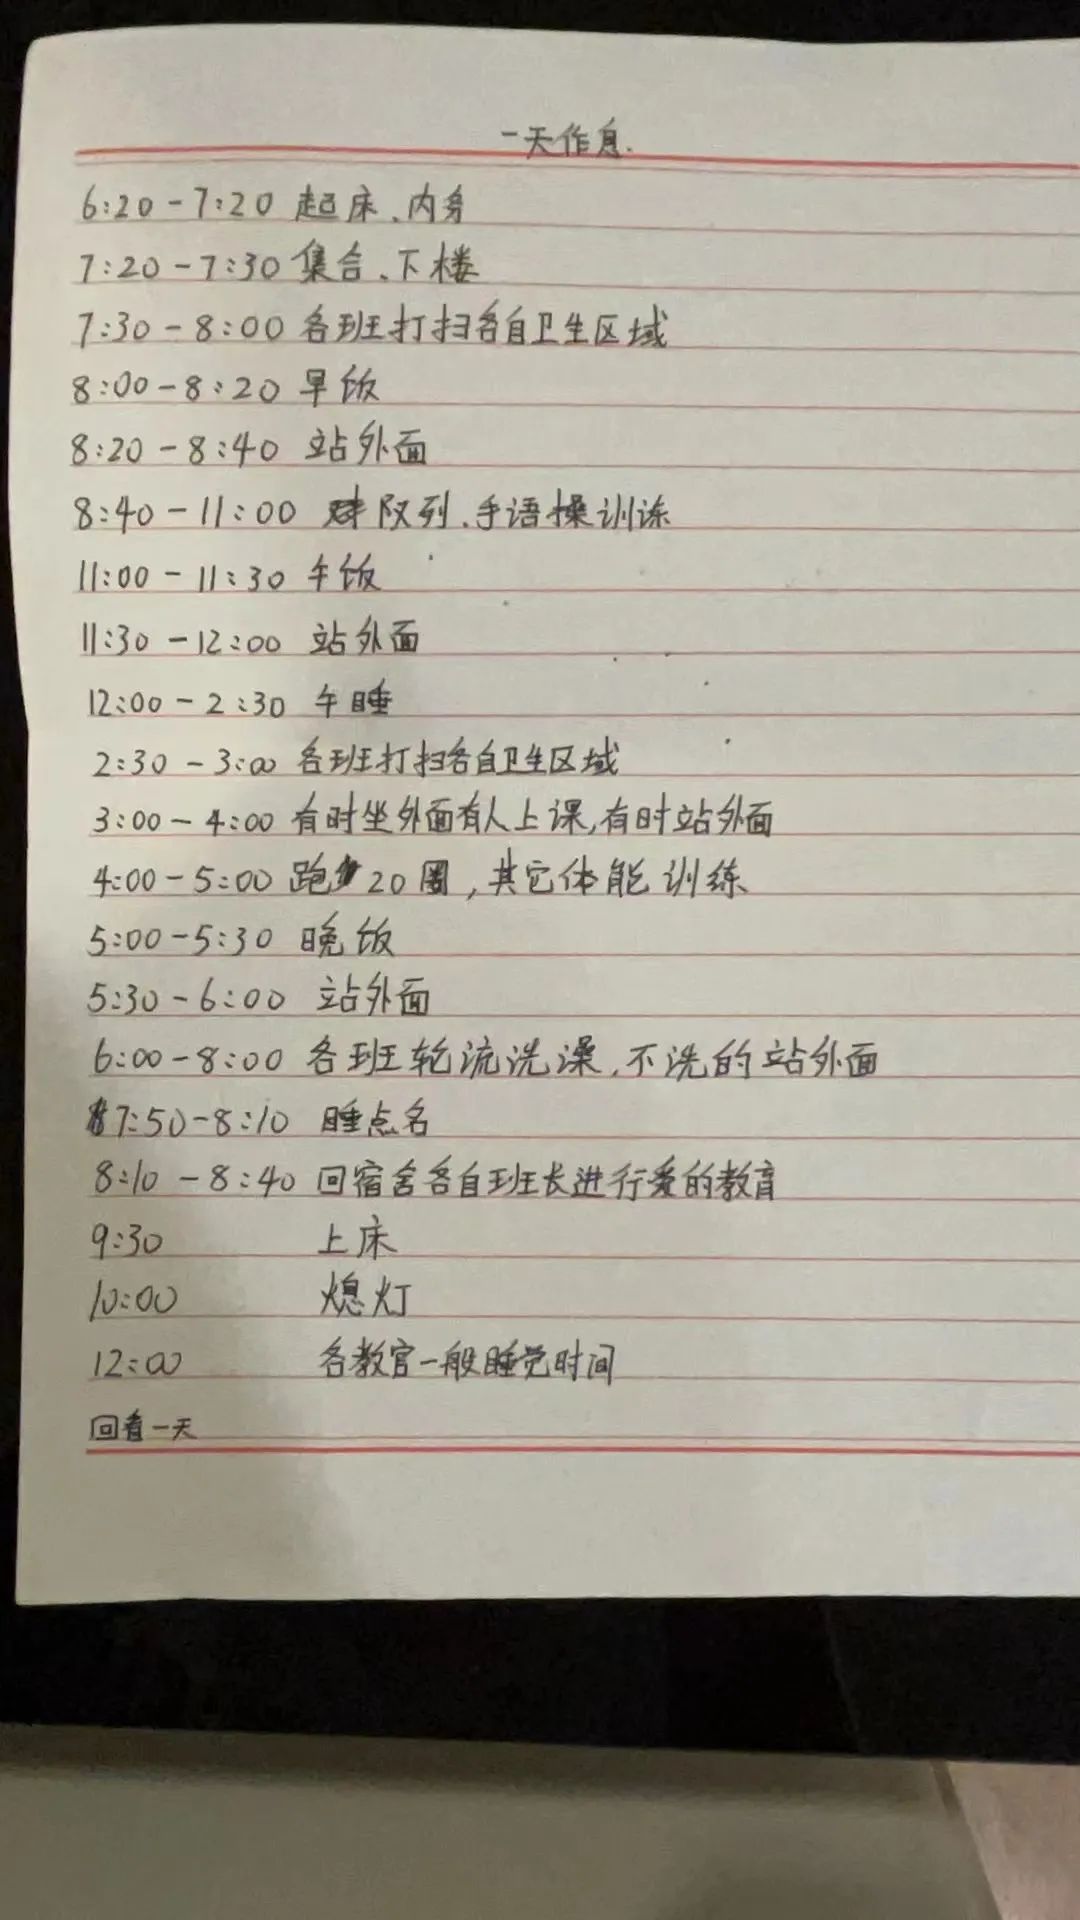 一天作息.
6:20-7:20 起床、内务
7:20-7:30 集合、下楼
7:30-8:00 各班打扫各自卫生区域
8:00-8:20 早饭
8:20-8:40 站外面
8:40-11:00 队列、手语操训练
11:00-11:30 午饭
11:30-12:00 站外面
12:00-2:30 午睡
2:30-3:00 各班打扫各自卫生区域
3:00-4:00 有时坐外面有人上课,有时站外面
4:00-5:00 跑20圈,其它体能训练
5:00-5:30 晚饭
5:30-6:00 站外面
6:00-8:00 各班轮流洗澡,不洗的站外面
7:50-8:10 睡点名
8:10-8:40 回宿舍各自班长进行爱的教育
9:30 上床
10:00 熄灯
12:00 各教官一般睡觉时间
回看一天